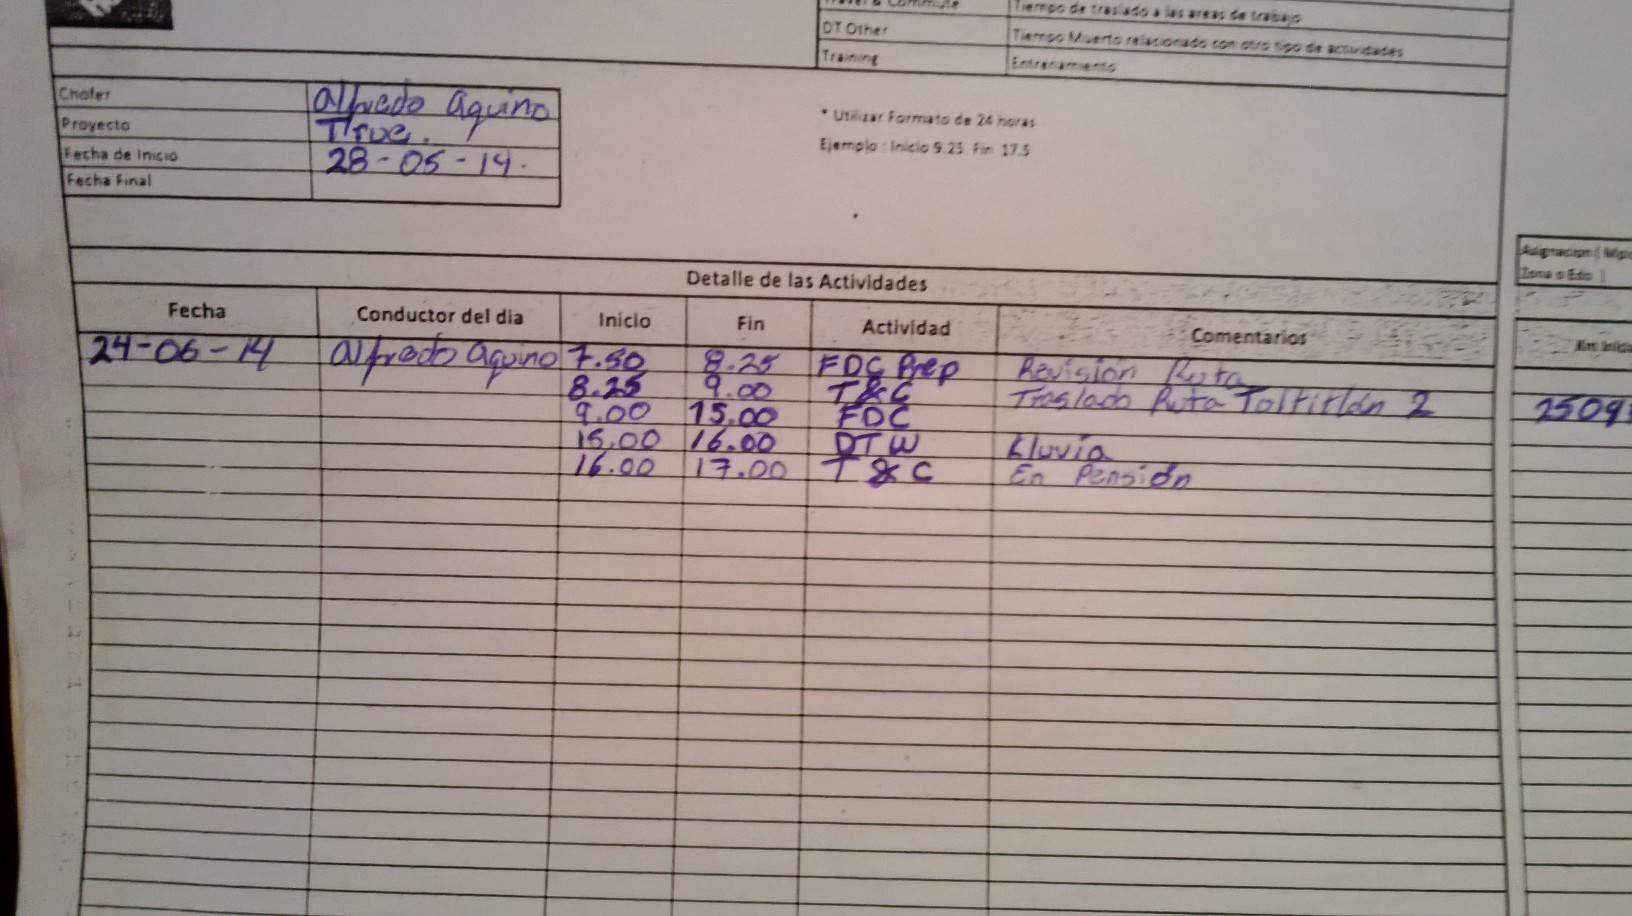 Travel & Commute Tiempo de traslado a las areas de trabajo
DT Other Tiempo Muerto relacionado con otro tipo de actividades
Training Entrenamiento
Chofer Alfredo Aquino
Proyecto True.
Fecha de Inicio 28-05-14.
Fecha Final
* Utilizar Formato de 24 horas
Ejemplo : Inicio 9.25 Fin 17.5
Asignacion (
Zona o Edo )
Detalle de las Actividades
Fecha Conductor del dia Inicio Fin Actividad Comentarios Km
24-06-14 Alfredo Aquino 7.50 8.25 FDC Prep Revisión Ruta
8.25 9.00 T&C Traslado Ruta Toltitlán 2 2509
9.00 15.00 FDC
15.00 16.00 DTW Lluvia
16.00 17.00 T&C En Pensión